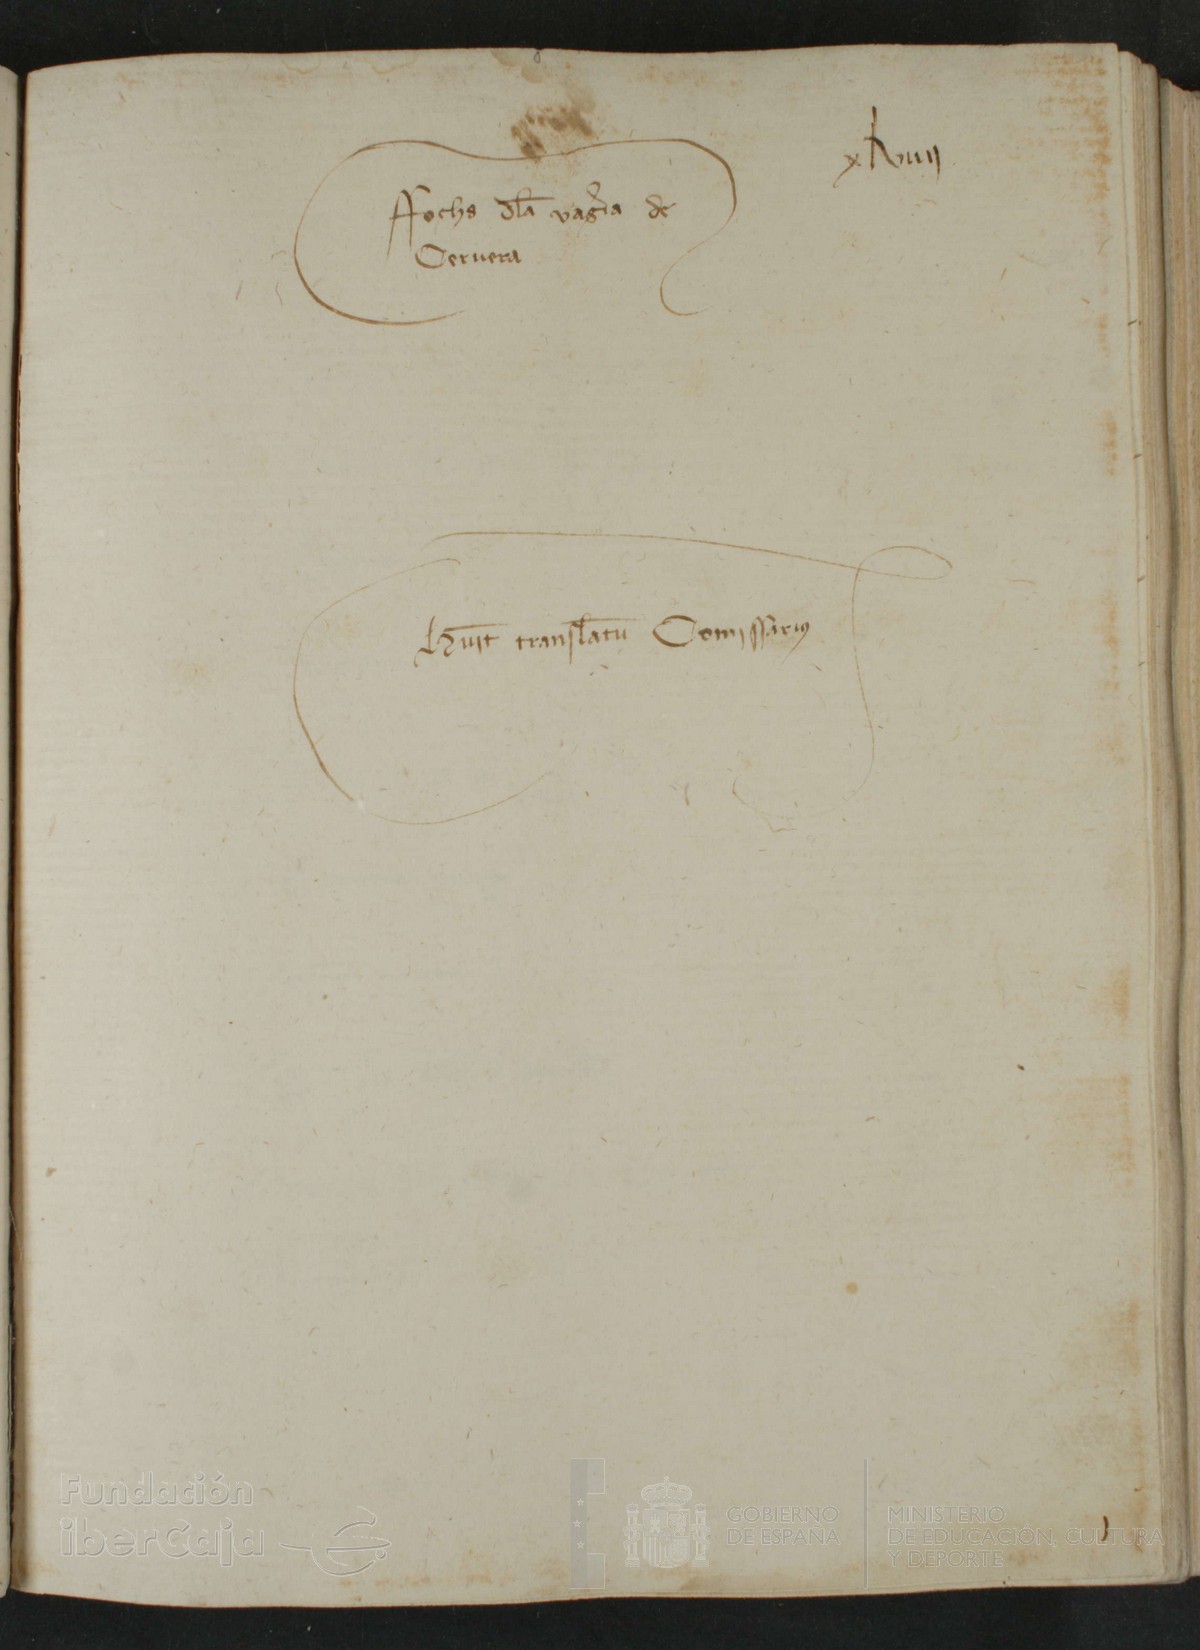 xlviiij
Ffochs dla vagia de
Ceruera
huit translatu Comissarius
Fundación
iberCaja
GOBIERNO
DE ESPAÑA
MINISTERIO
DE EDUCACIÓN, CULTURA
Y DEPORTE